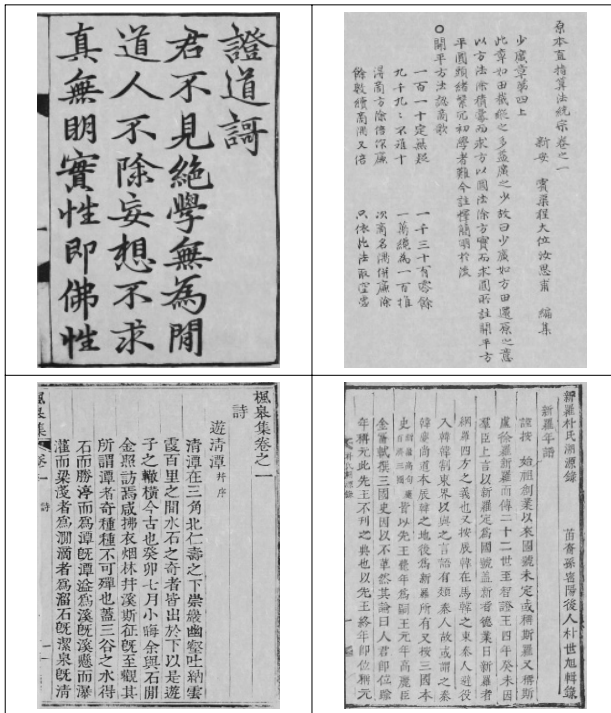 證道謌
君不見絕學無為閒
道人不除妄想不求
真無明實性即佛性
原本直指算法統宗卷之一
新安 賓渠程大位汝思甫 編集
少廣章第四上
此章如田截縱之多益廣之少故曰少廣如方田還原之意
以方法除積冪而求方以圓法除方實而求圓所註開平方
平圓頭緒繁冗初學者難今註釋簡明於後
○開平方法認商歌
一百一十定無疑 一千三十有零餘
九千九九不離十 一萬纔為一百推
得商方除倍作廉 次商名隅併廉除
餘數續商隅又倍 只依此法取空虛
楓皋集卷之一
詩
遊清潭 幷序
清潭在三角北仁壽之下崇巖幽壑吐納雲
霞百里之間水石之奇者皆出於下以是遊
子之轍橫今古也癸卯七月小晦余與石閒
金照訪焉咸拂衣烟林幷溪斯征旣至觀其
所謂潭者奇種種不可殫也蓋三谷之水得
石而勝渟而為潭旣潭溢為溪旣溪懸而瀑
灌而梁淺者為澗滴者為溜石旣潔泉旣清
楓皋集 卷一 詩 一
新羅朴氏淵源錄 苗裔孫密陽後人朴世旭輯錄
新羅年譜
謹按 始祖創業以來國號未定或稱斯羅又稱斯
盧徐羅新羅而傳二十二世至智證王四年癸未因
羣臣上言以新羅定為國號蓋新者德業日新羅者
網羅四方之義也又按辰韓在馬韓之東秦人避役
入韓韓割東界以與之言語有類秦人故或謂之秦
韓慶尚道本辰韓之地後為新羅所有又按三國本
史 皆以先王薨年為嗣王元年高麗臣
金富軾撰三國史因以不革然其論曰人君即位踰
年稱元此先王不刊之典也以先王終年即位稱元